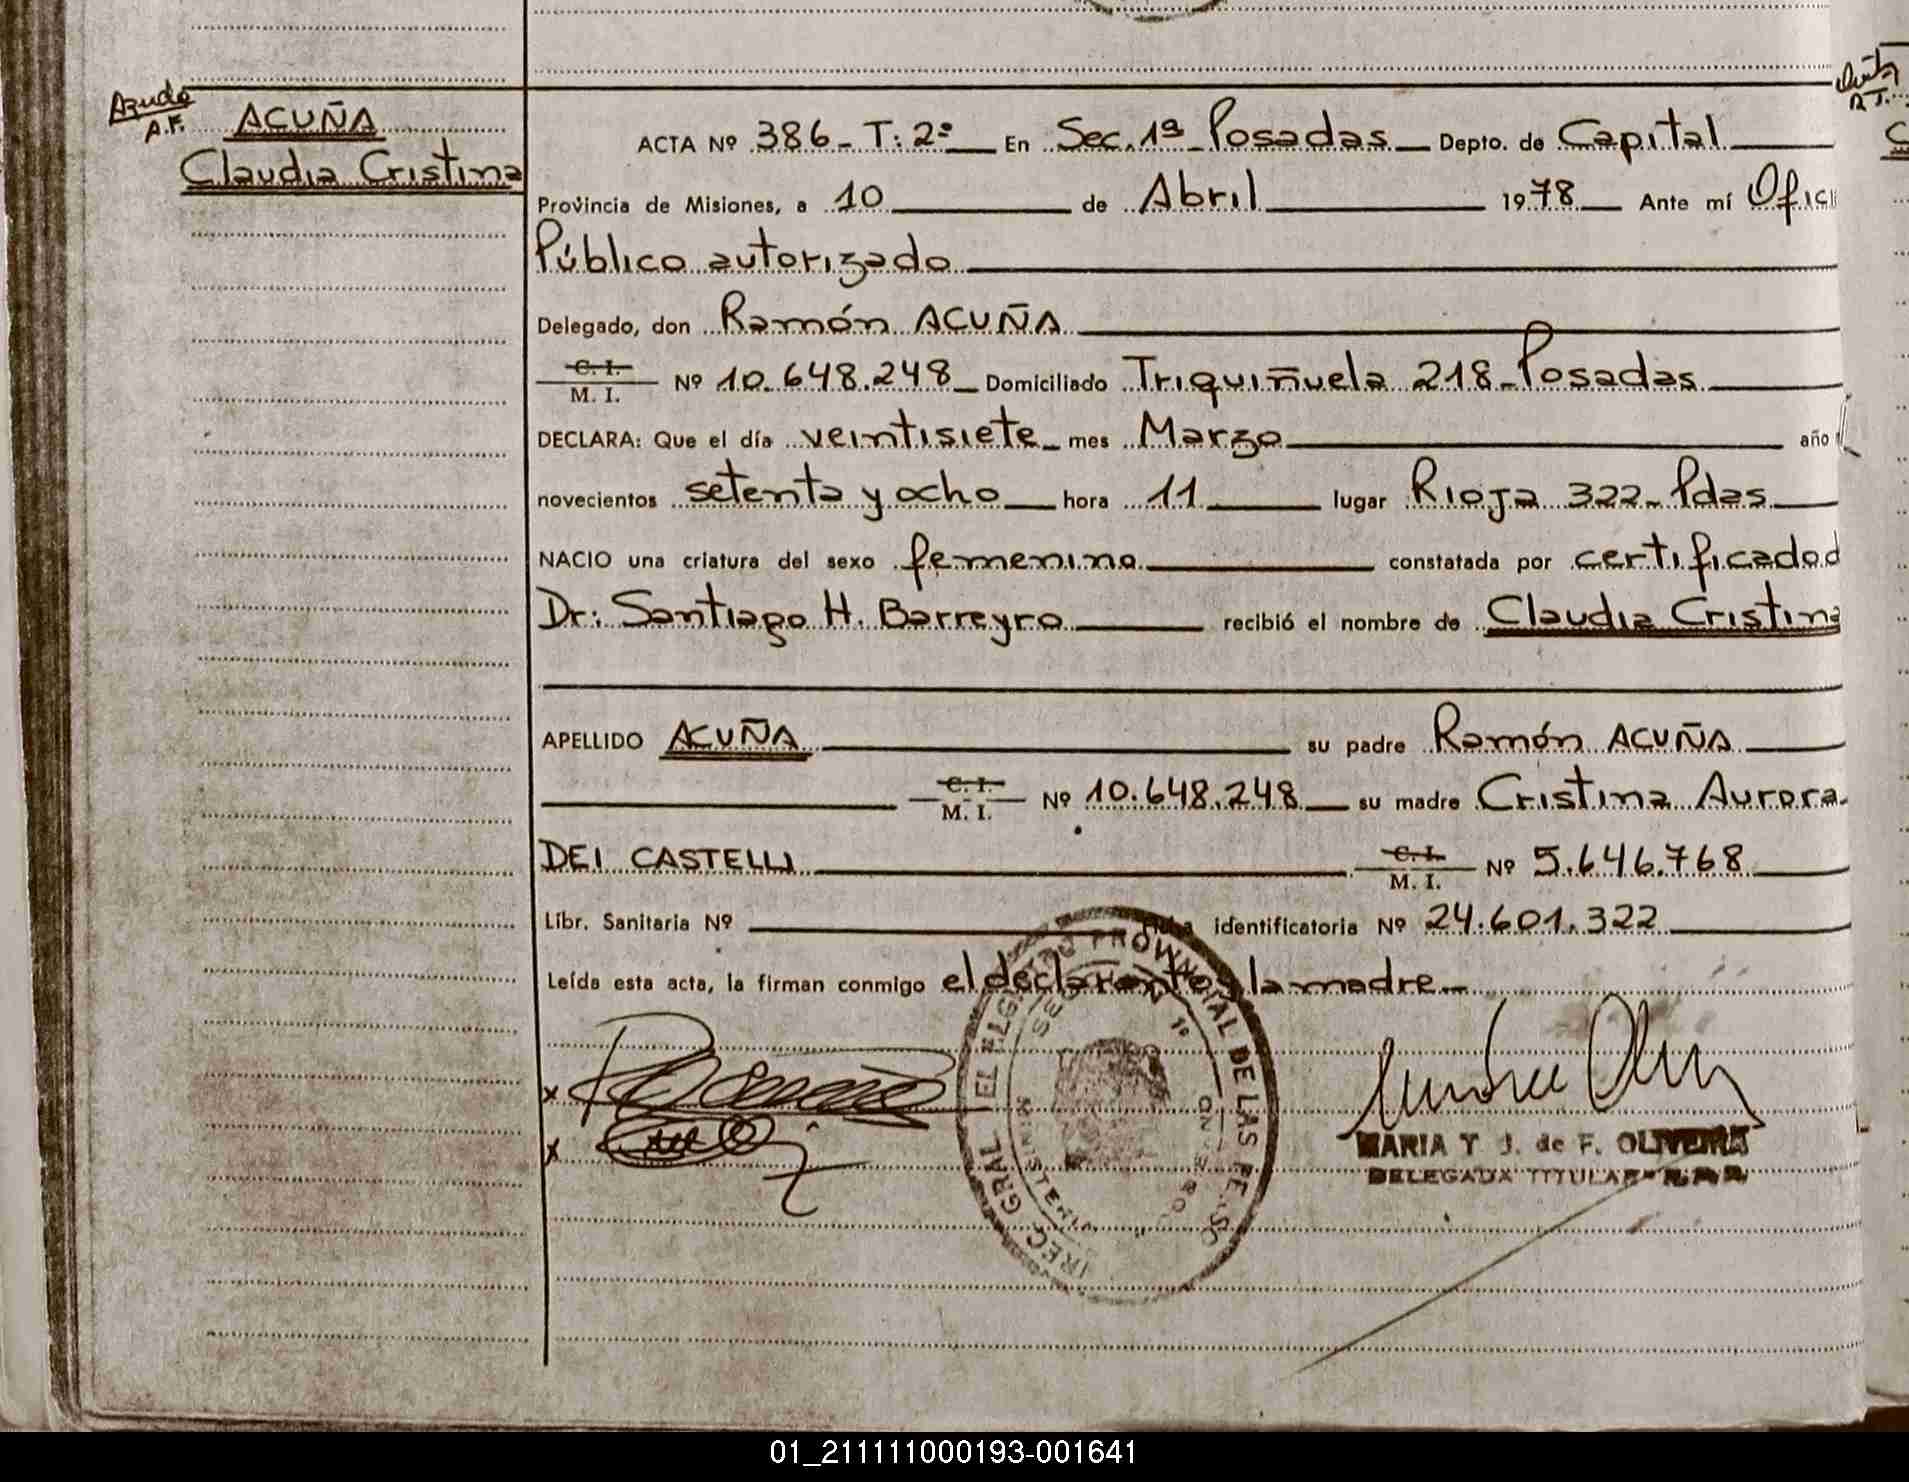 Ayudo
A.F.
ACUÑA
Claudia Cristina
ACTA Nº 386 - T: 2º En Sec. 1ª Posadas Depto. de Capital
Provincia de Misiones, a 10 de Abril 1978 Ante mí Oficial
Público autorizado
Delegado, don Ramón ACUÑA
C. I.
M. I. Nº 10.648.248 Domiciliado Triquiñuela 218 - Posadas
DECLARA: Que el día veintisiete mes Marzo año
novecientos setenta y ocho hora 11 lugar Rioja 322 - Pdas
NACIO una criatura del sexo femenino constatada por certificado d
Dr: Santiago H. Barreyro recibió el nombre de Claudia Cristina
APELLIDO ACUÑA su padre Ramón ACUÑA
C. I.
M. I. Nº 10.648.248 su madre Cristina Aurora
DEI CASTELLI C. I.
M. I. Nº 5.646.768
Libr. Sanitaria Nº identificatoria Nº 24.601.322
Leída esta acta, la firman conmigo el declarante y la madre.
DIREC. GRAL. DEL REGISTRO PROVINCIAL DE LAS PERSO
MARIA Y J. de F. OLIVEIRA
DELEGADA TITULAR
01_211111000193-001641